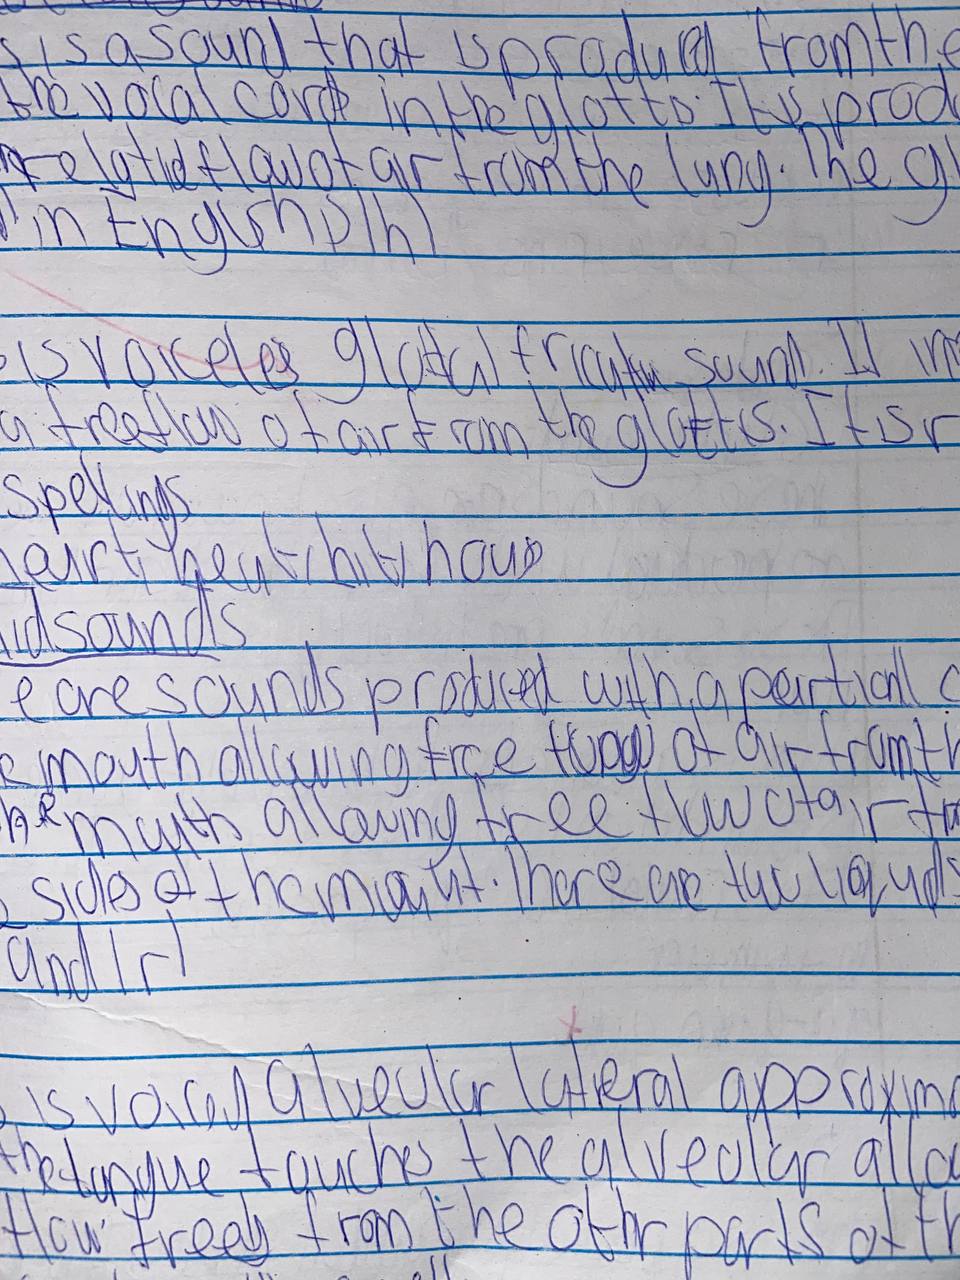 is a sound that is produced from the
the vocal cord in the glotto. It is prod
relative flow of air from the lung. The gl
in English is |h|
is voiceless glotal fricative sound. It in
a free flow of air from the glottis. It is r
spellings
heart, heat, hit, hous
idsounds
e are sounds produced with a particall c
e mouth allowing free of air from th
the mouth allowing free flow of air fro
sides of the mouht. There are two liquids
and |r|
is voiced alveolar lateral approxima
the tongue touches the alveolar allo
flow freely from the othr parts of th